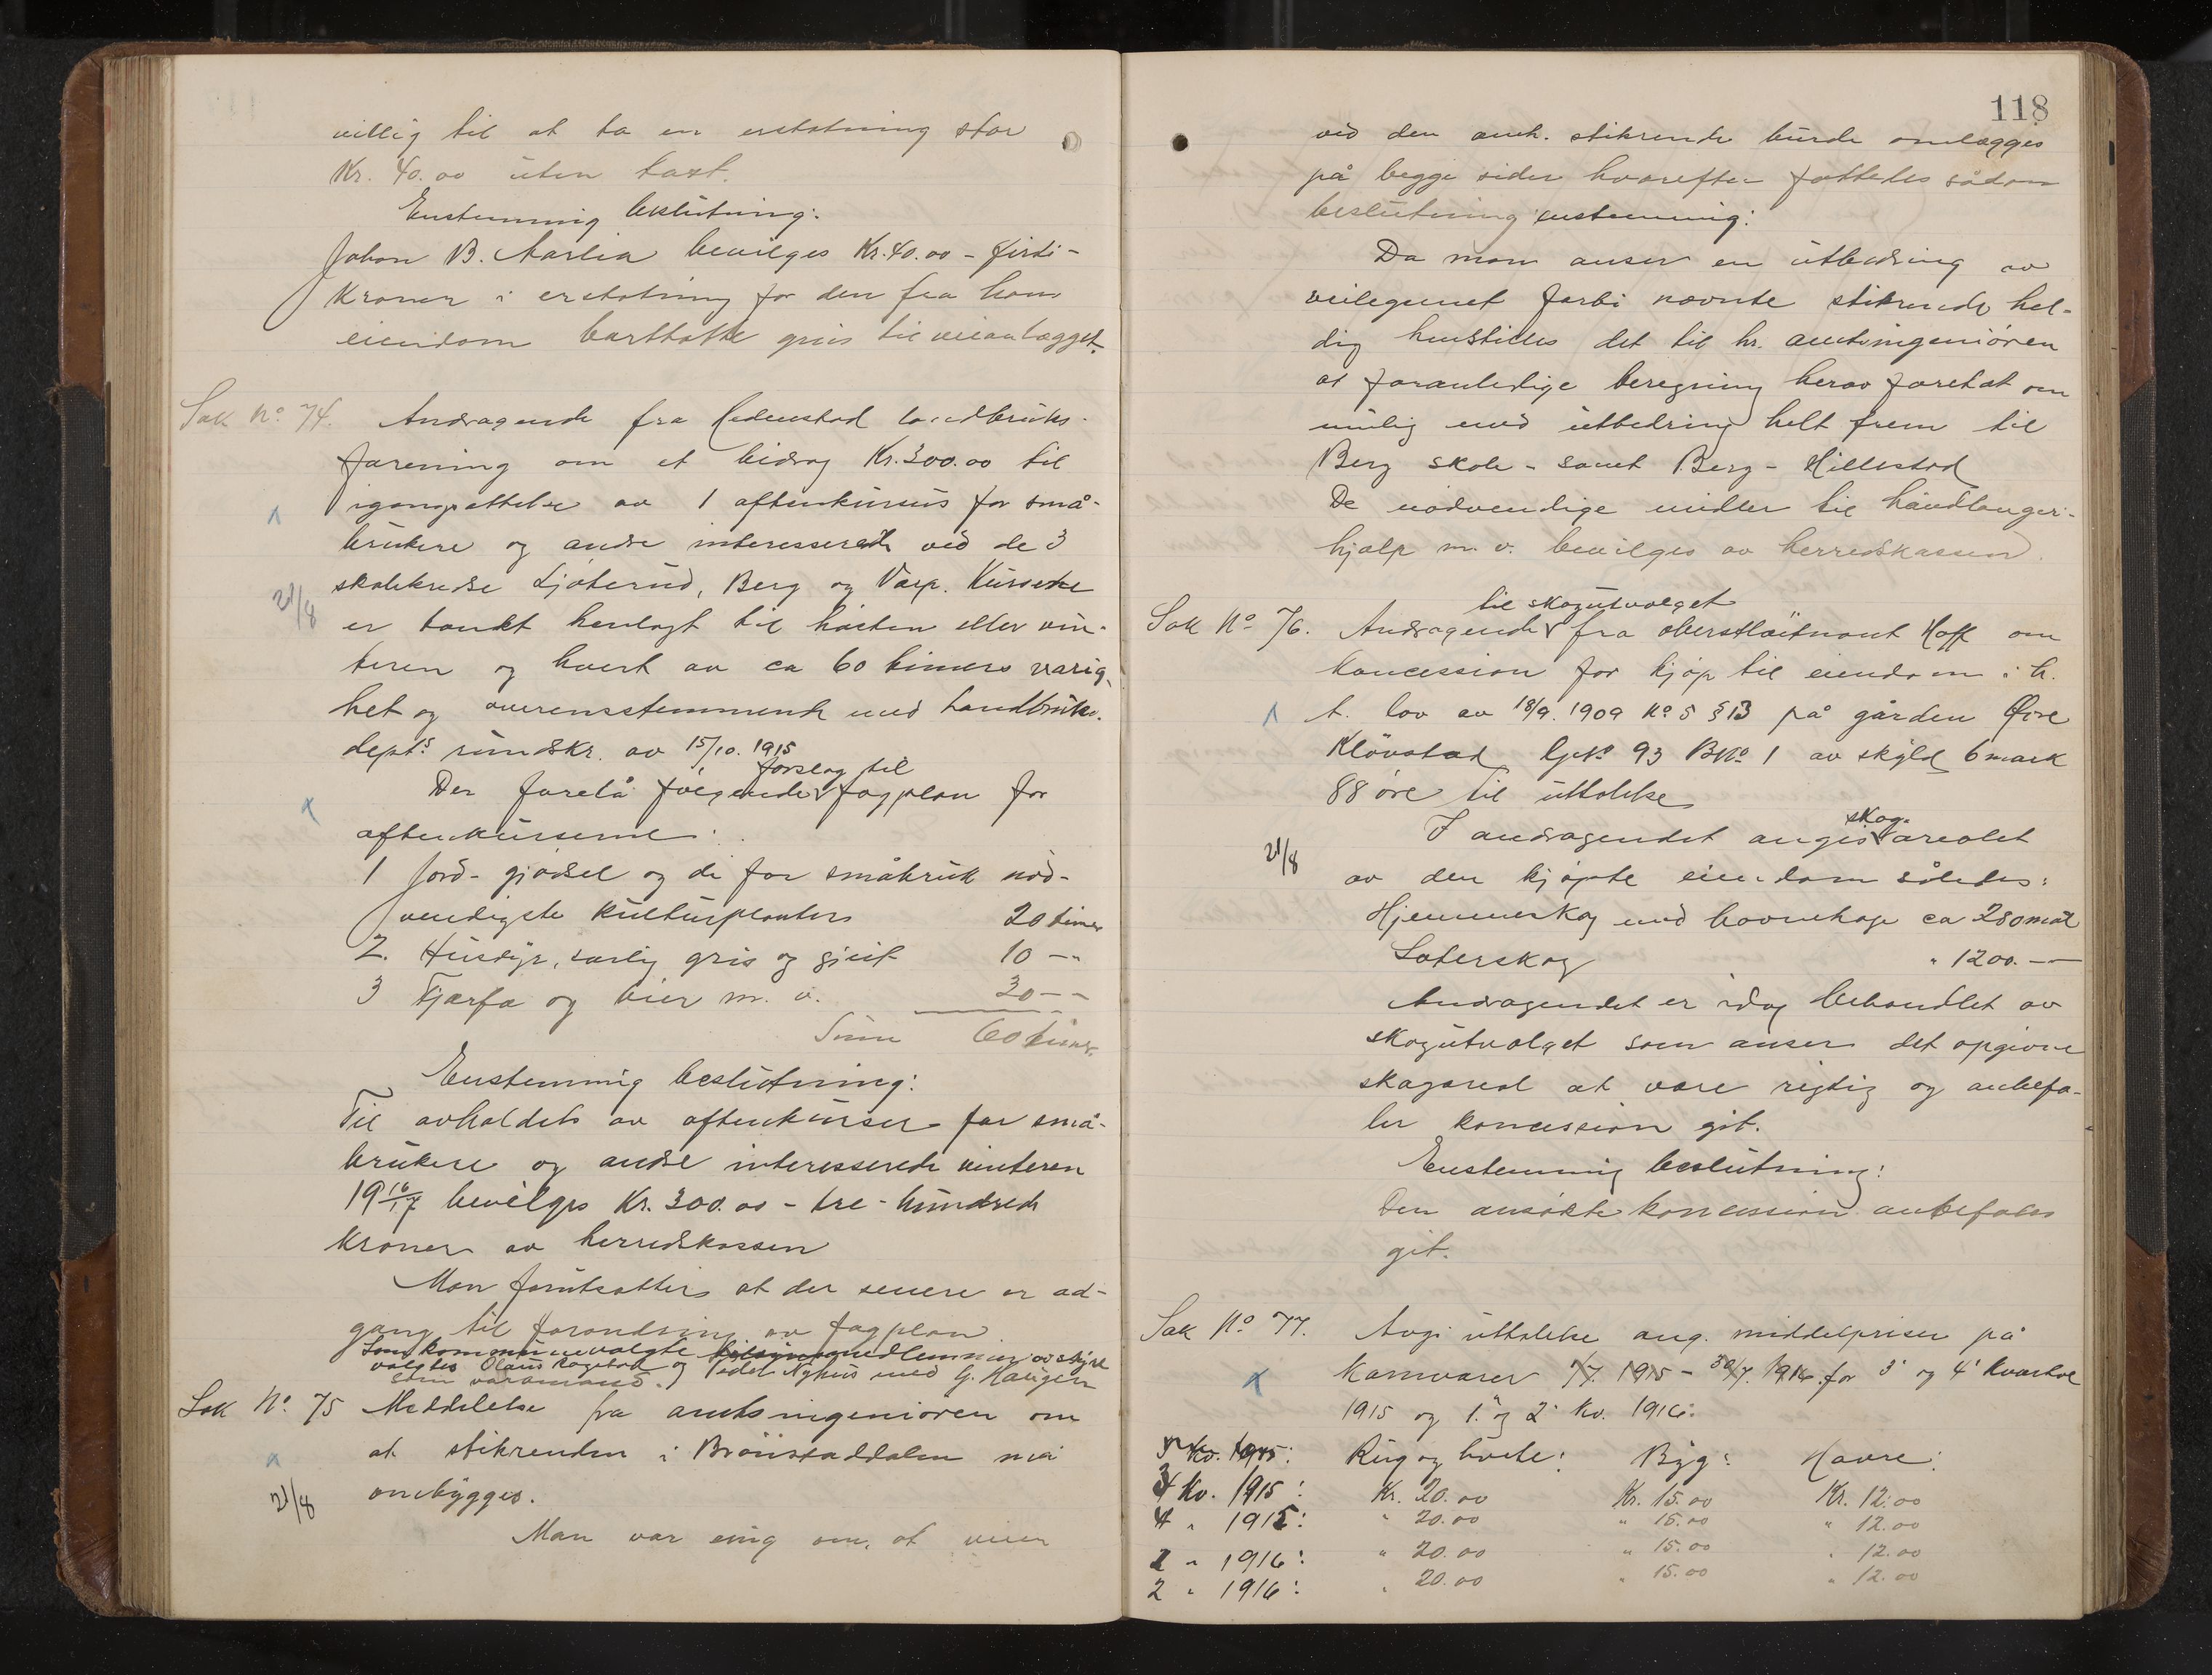 villig til at ta en erstatning stor
Kr. 40.00 uten taxt.
Enstemmig beslutning:
Johan B. Aaslia bevilges Kr. 40.00 - firti -
Kroner i erstatning for den fra hans
eiendom borttatte grus til veianlægget.
Sak No. 74. Andragende fra Hedenstad landbruks-
forening om et bidrag Kr. 300.00 til
igangsættelse av 1 aftenkursus for små-
brukere og andre interesserede ved de 3
skolekredse Ljøterud, Berg og Varp. Kursene
21/8
er tænkt henlagt til høsten eller vin-
teren og hvert av ca 60 timers varig-
het og overensstemmende med landbruks-
depts rundskr. av 15/10. 1915
forslag til
Der forelå følgende fagplan for
aftenkurserne:
1 Jord- gjødsel og de for småbruk nød-
vendigste kulturplanter 20 timer
2. Husdyr, særlig gris og gjeit 10 -"
3 Fjærfæ og bier m. v. 30 - -
Sum 60 timer.
Enstemmig beslutning:
Til avholdelse av aftenkurser for små-
brukere og andre interesserede vinteren
1916/17 bevilges Kr. 300.00 - tre - hundrede
Kroner av herredskassen
Man forutsætter at der senere er ad-
gang til forandring av fagplan.
Som kommunevalgte medlemmer av styre
valgtes Olaus og Peder Nyhus med G. Haugen
som varamand.
Sak No. 75 Meddelelse fra amtsingeniøren om
at stikrenden i Brønstaddalen må
21/8
ombygges.
Man var enig om, at veien
118
ved den anh. stikrende burde omlægges
på begge sider hvorefter fattedes sådan
beslutning enstemmig:
Da man anser en utbedring av
veilegemet forbi nævnte stikrende hel-
dig henstilles det til hr. amtsingeniøren
at foranledige beregning herav foretat om
mulig med utbedring helt frem til
Berg skole - samt Berg - Hillestad
De nødvendige midler til håndlanger-
hjælp m. v. bevilges av herredskassen.
til skogutvalget
Sak No. 76. Andragende fra oberstløitnant Hoff om
koncession for kjøp til eiendom i h.
t. lov av 18/9. 1909 No 5 § 13 på gården Øvre
Kløvstad Gno 93 Bno 1 av skyld 6 mark
88 øre til uttalelse
skog-
I andragendet angis arealet
21/8
av den kjøpte eiendom således:
Hjemmeskog med havnehage ca 280 mål
Sæterskog " 1200 - -
Andragendet er idag behandlet av
skogutvalget som anser det opgivne
skogareal at være rigtig og anbefa-
ler koncession git.
Enstemmig beslutning:
Den ansøkte koncession anbefales
git.
Sak No. 77. Avgi uttalelse ang. middelpriser på
kornvarer 1/7. 1915 - 30/7. 1916. for 3' og 4' kvartal
1915 og 1' og 2' Kv. 1916:
Kv. 1915: Rug og hvete: Byg: Havre:
3 Kv. 1915: Kr. 20.00 Kr. 15.00 Kr. 12.00
4 " 1915: " 20.00 " 15.00 " 12.00
1 " 1916: " 20.00 " 15.00 " 12.00
2 " 1916: " 20.00 " 15.00 " 12.00